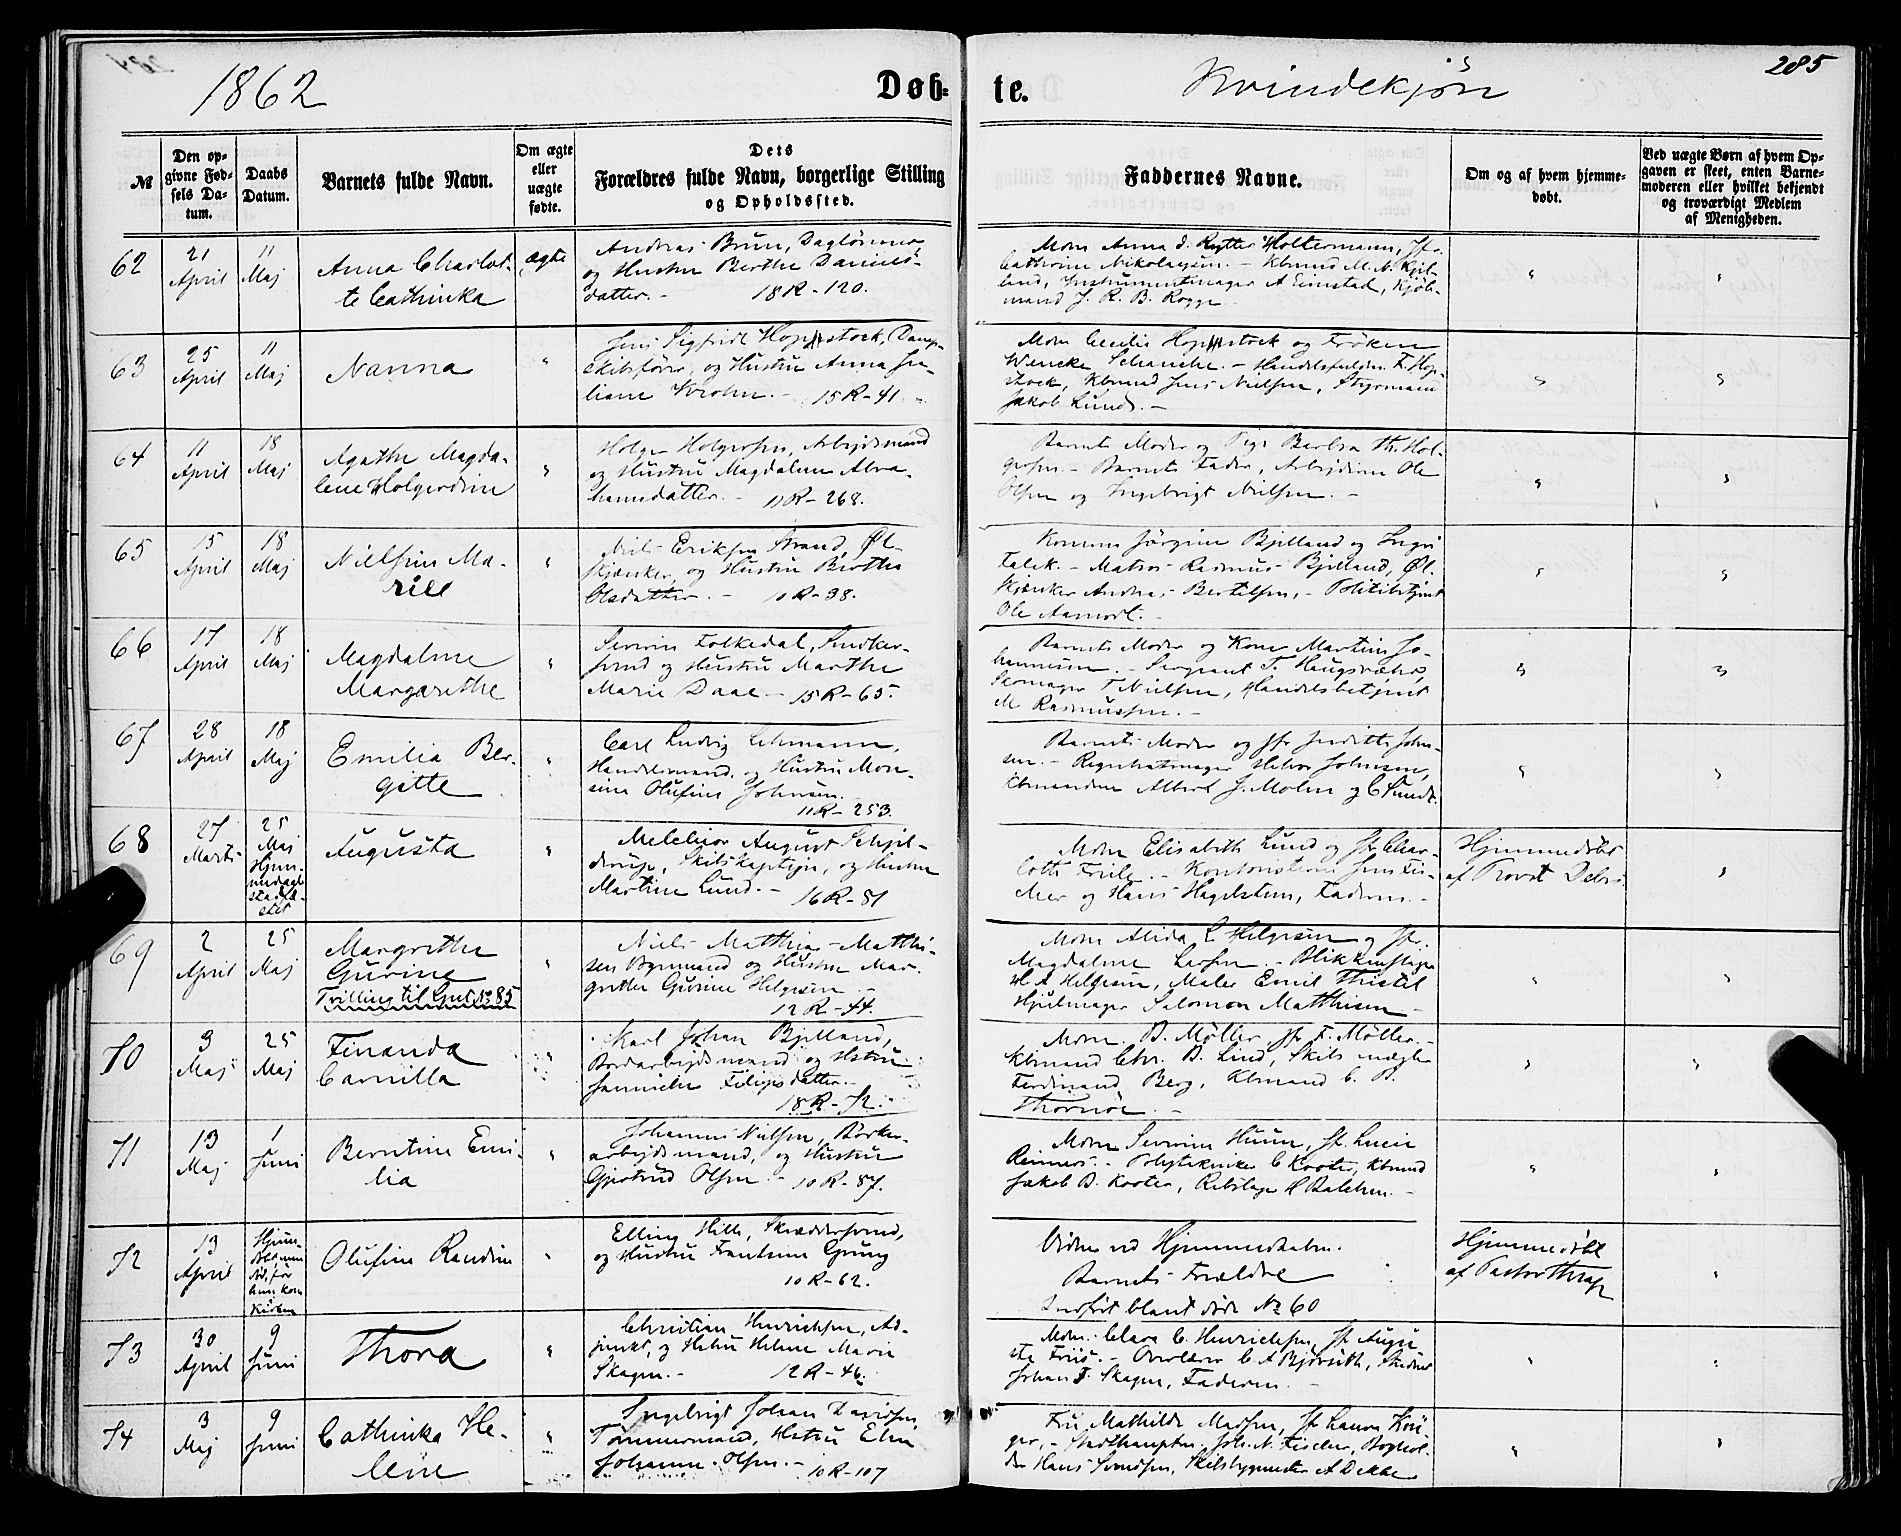 1862
Døb-
te.
Kvindekjøn
285
№
Den op-
givne Fød-
sels Da-
tum.
Daabs
Datum.
Barnets fulde Navn.
Om ægte
eller
uægte
fødte.
Dets
Forældres fulde Navn, borgerlige Stilling
og Opholdssted.
Faddernes Navne.
Om og af hvem hjemme-
døbt.
Ved uægte Børn af hvem Op-
gaven er skeet, enten Barne-
moderen eller hvilket bekjendt
og troværdigt Medlem
af Menigheden.
62
21
April
11
Maj
Anna Charlot-
te Cathinka
ægte
Andreas Brun, Daglønner,
og Hustru Berthe Daniels-
datter. - 18 R - 120.
Mdm Anna d. Rytter Holtermann, Jfr.
Cathrine Nikolaysen. - Kbmnd M. N. Kjil-
land, Instrumentmager A Eimstad, Kjøb-
mand J. R. B. Rogge
63
25
April
11
Maj
Nanna
"
Jens Sigfride Hopstock, Damp-
skibsfører, og Hustru Anna Ju-
liane Krohn. - 15 R - 41 -
Mdm Cecilie Hopstock og Frøken
Wencke Schanche. - Handelsfuldm. F. Hop-
stock, Kbmnd Jens Nielsen, Styrmand
Jakob Lund. -
64
11
April
18
Maj
Agathe Magda-
lene Holgerdine
"
Holger Holgersen, Arbejdsmand
og Hustru Magdalene Abra-
hamsdatter. - 11 R - 268.
Barnets Moder og Pige Barbra Th. Hol-
gersen. - Barnets Fader, Arbejderne Ole
Olsen og Ingebrigt Nielsen. -
65
15
April
18
Maj
Nielsine Ma-
rie
"
Niels Eriksen Strand, Øl-
skjænker, og Hustru Berthe
Olsdatter. - 10 R - 38.
Konerne Jørgine Bjelland og Inger
Falck. - Matros Rasmus Bjelland, Øl-
skjænker Andreas Bertelsen, - Politibetjent
Ole Aamodt. -
66
17
April
18
Maj
Magdalene
Margarethe
"
Severin Folkedal, Snedker-
svend og Hustru Marthe
Marie Daae - 15 R - 65.
Barnets Moder og Kone Martine Jo-
hannesen. - Sergeant T. Haugsvæhr,
Skomager T Nielsen, Handelsbetjent
M Rasmussen. -
67
28
April
18
Maj
Emilia Ber-
gitte
"
Carl Ludvig Lehmann,
Handelsmand, og Hustru Mon-
sine Olufine Johnsen.
11 R - 253.
Barnets Moder og Jfr Judith John-
sen. - Regnskabsmager Halvor Johnsen,
Kbmændene Albert J. Mohn og C Sundt.
68
27
Marts
25
Maj
Hjem-
medaab
stadfæ-
stet
Augusta
"
Melchior August Schjel-
derup, Skibskaptejn, og Hustru
Martine Lund. - 16 R - 81
Mdm Elisabeth Lund og Jfr Char-
lotte Friele. - Kontoristerne Jens Fis-
cher og Hans Hagelsteen, Faderen. -
Hjemmedøbt
af Provst Debes
69
2
April
25
Maj
Margrethe
Gurine
Tvilling til Gut № 85
"
Niels Matthias Matthi-
sen Bymand og Hustru Mar-
grethe Gurine Helgesen. -
12 R - 44.
Mdm Alida L Helgesen og Jfr.
Magdalene Larsen. - Blikkenslager
H. A Helgesen, Maler Emil Thistel
Hjulmager Salomon Matthisen -
70
3
Maj
25
Maj
Finanda
Camilla
"
Karl Johan Bjelland,
Bordarbejdsmand og Hstru
Jannicke Filipsdatter. -
18 R - 72. -
Mdm. B. Møller, Jfr F. Møller. -
Kbmand Chr. B. Lind, Skibsmægler
Ferdinand Berg, Kbmand C. B.
Thornøe. -
71
13
Maj
1
Juni
Berntine Emi-
lia
"
Johannes Nielsen, Børker-
arbejdsmand, og Hustru
Gjertrud Olsen. - 10 R - 87.
Mdm Severine Huun, Jfr Lucie
Reimers. - Polytekniker C Koster, Kbmnd
Jakob B. Koster, Rebslager H Balchen. -
72
13
April
Hjem-
døbt, men
død, før
hun kom
i Kirken
Olufine Randine
"
Elling Hille, Skræddersvend,
og Hustru Frantsine Gryng
10 R - 62.
Vidner ved Hjemmedaaben:
Barnets Forældre
Indført blant døde № 60
Hjemmedøbt
af Pastor Thrap
73
30
April
9
Juni
Thora
"
Christian Henrichsen, Ad-
junkt, og Hstru Helene Marie
Skagen. - 12 R - 46.
Mdm. Clara C. Henrichsen, Jfr Augu-
sta Friis. - Overlærer C. A Bjørseth, Student
Johan F. Skagen, Faderen. -
74
3
Maj
9
Juni
Cathinka He-
lene
"
Ingebrigt Johan Davidsen,
Tømmermand, Hstru Elen
Johanne Olsen. - 10 R - 107
Fru Mathilde Madsen, Jfr Laura Krü-
ger. - Stadthauptm. Joh. N. Fischer, Boghol-
der Hans Svendsen, Skibsbygmester A Dekke